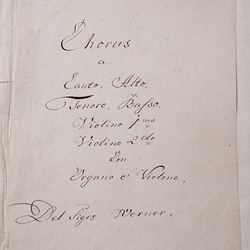 Chorus
a
Canto, Alto,
Tenore, Basso,
Violino 1mo
Violino 2do
Con
Organo e Violone.
Del Sigre Werner.